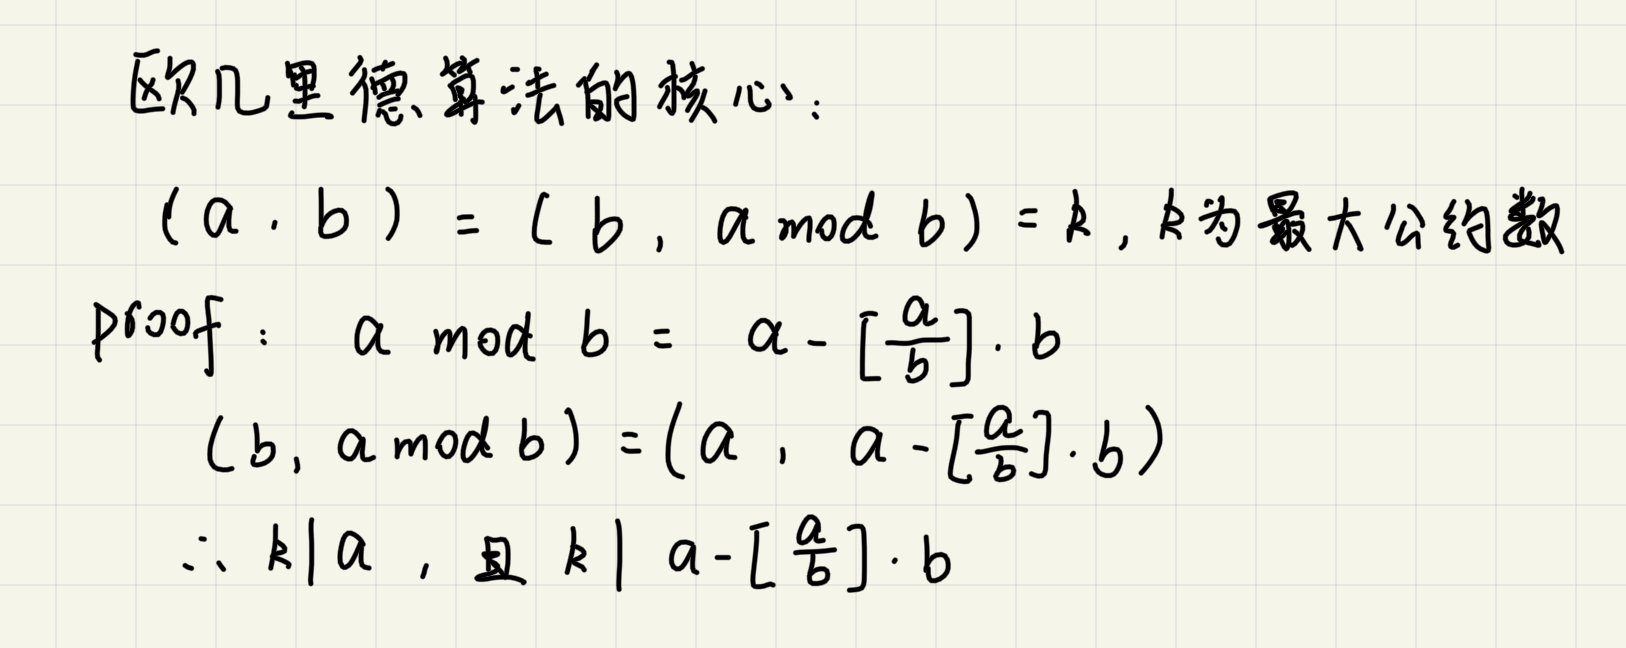 欧几里德算法的核心:
(a, b) = (b, a mod b) = k, k为最大公约数
proof: a mod b = a - [a/b]·b
(b, a mod b) = (a, a - [a/b]·b)
∴ k|a, 且 k| a - [a/b]·b